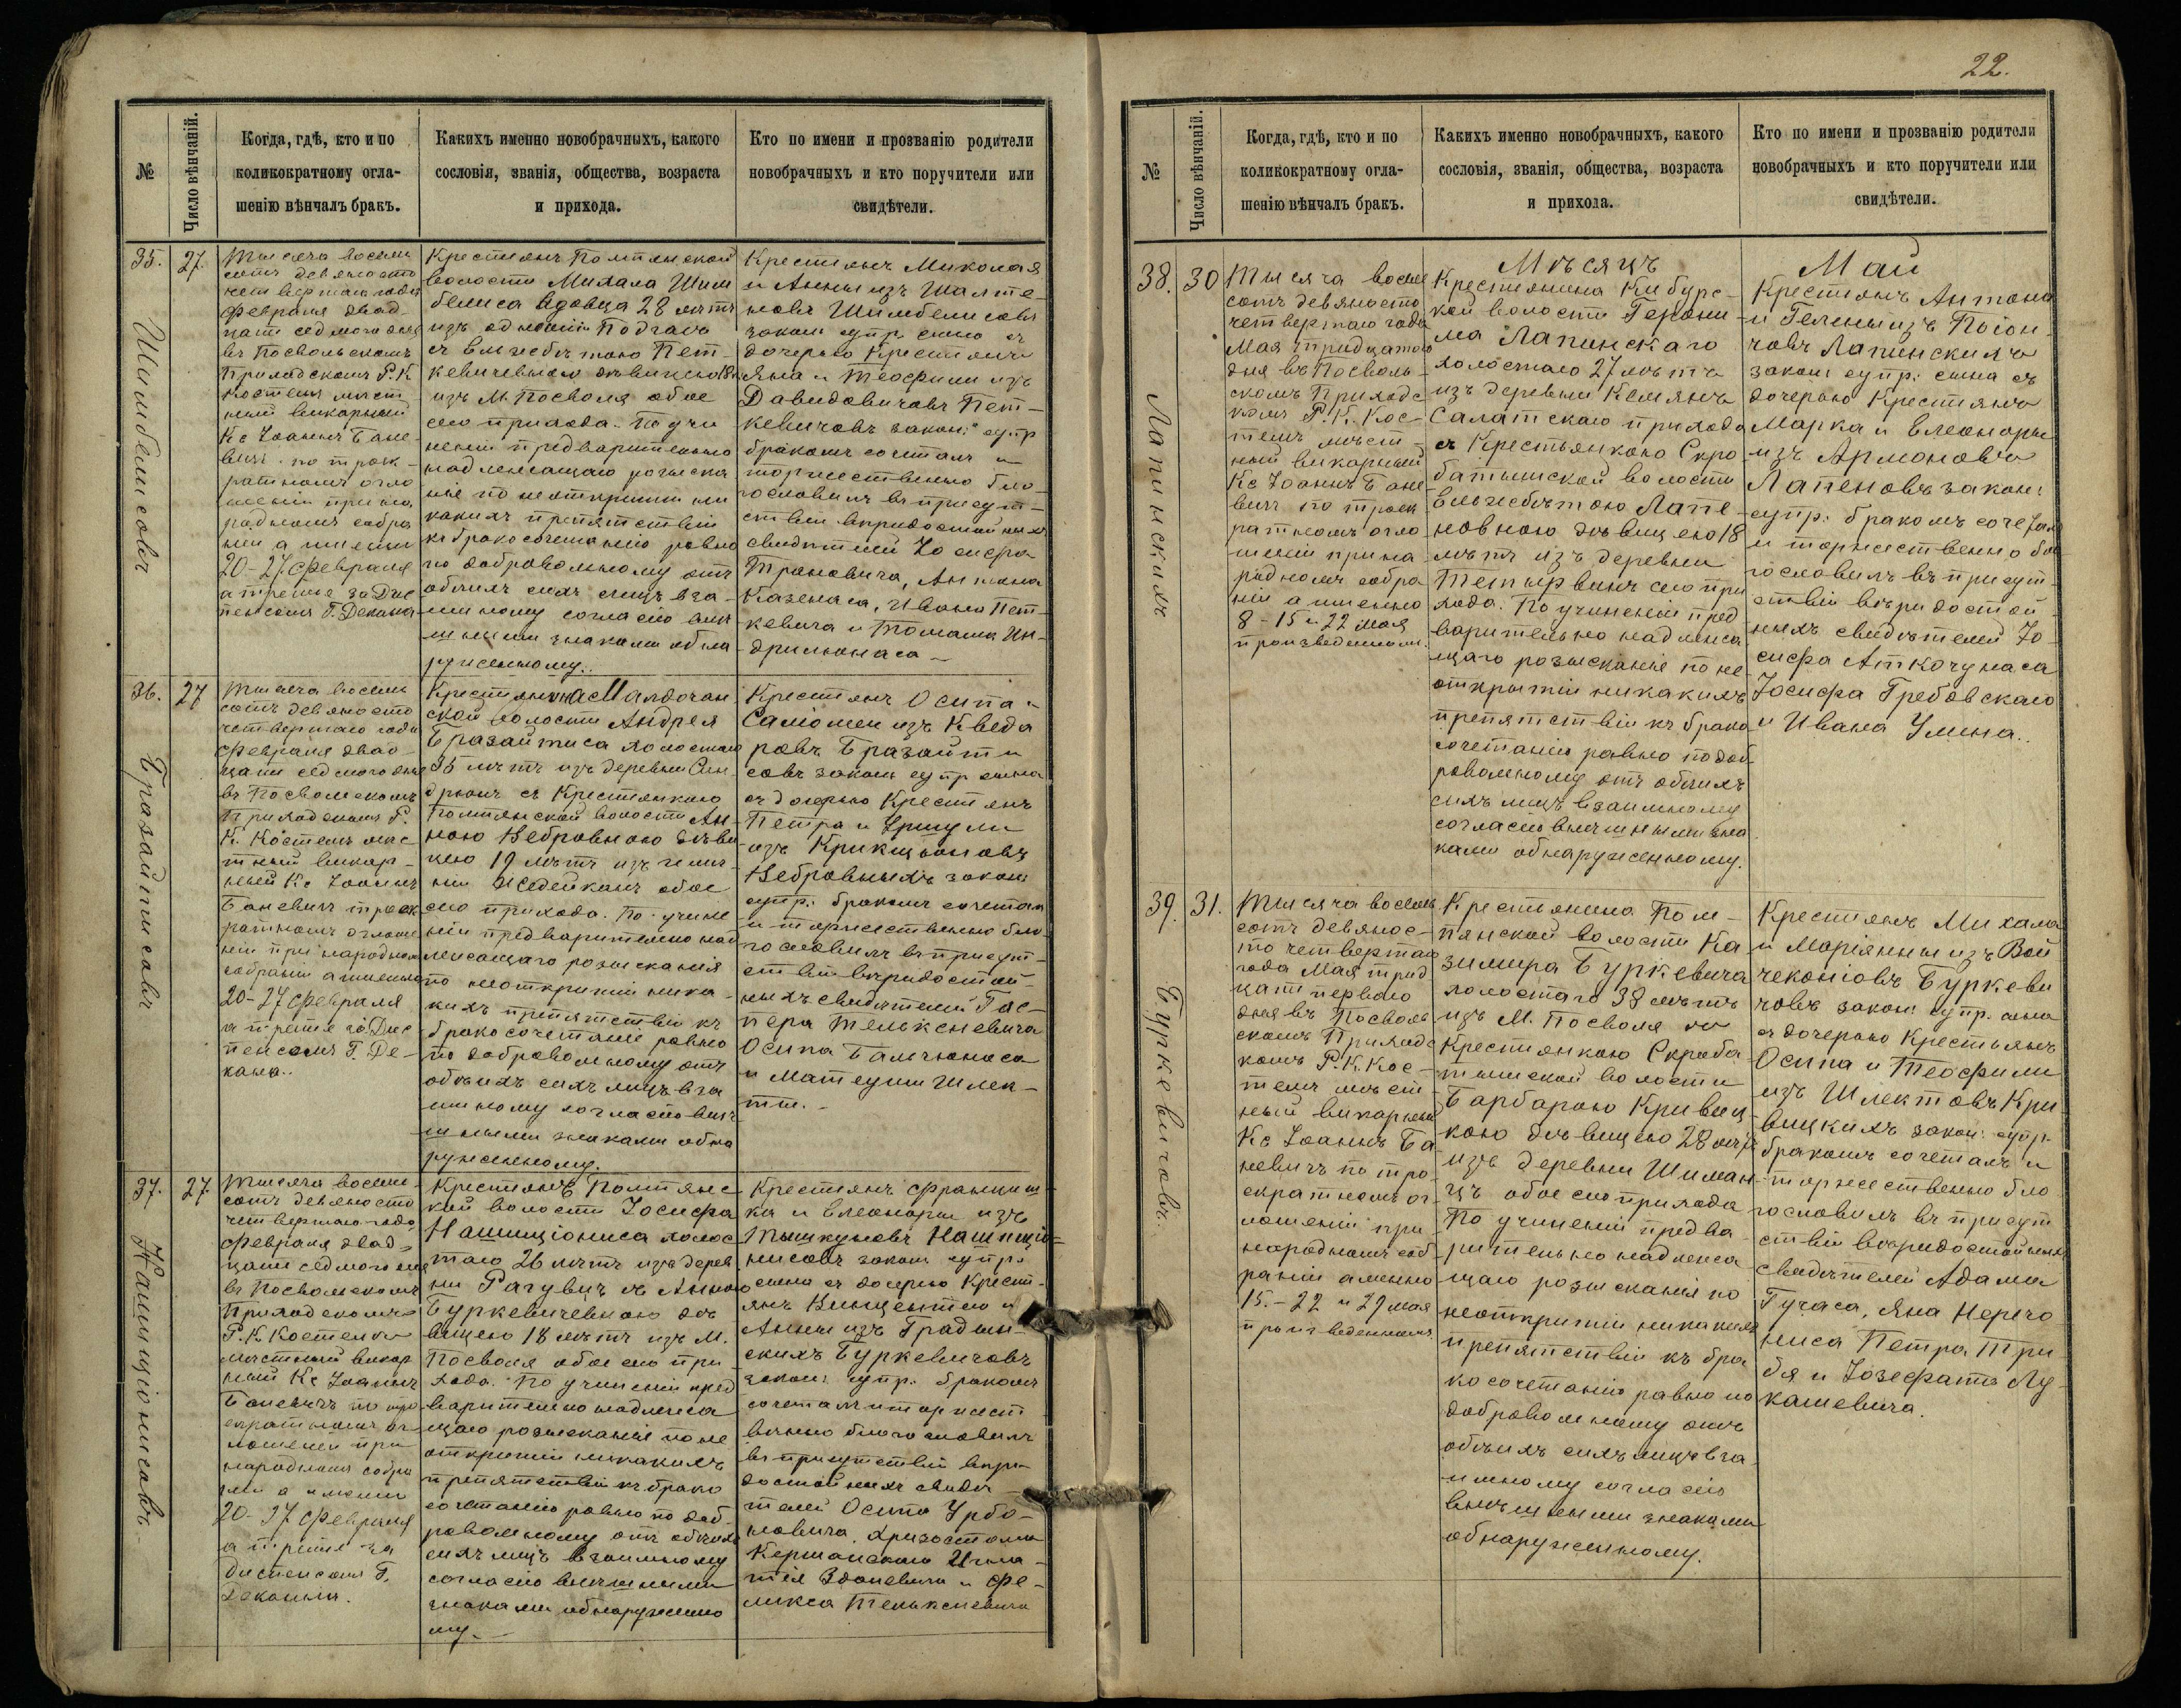 22.
№
Число вѣнчаній.
Когда, гдѣ, кто и по
коликократному огла-
шенію вѣнчалъ бракъ.
Какихъ именно новобрачныхъ, какого
сословія, званія, общества, возраста
и прихода.
Кто по имени и прозванію родители
новобрачныхъ и кто поручители или
свидѣтели.
35.
27.
Шимбелисовъ
Тысяча восемь
сотъ девяносто
четвертаго года
Февраля двад-
цать седмого дня
въ Посвольскомъ
Приходскомъ Р. К
Костелѣ мѣст
ный викарный
Кс Іоаннъ Бане-
вичъ по троек-
ратномъ огло
шеніи при на
родномъ собра
ніи а именно
20-27 Февраля
а третье за Дис
пенсою Г. Декана
Крестьянъ Помпянской
волости Михала Шим
белиса вдовца 28 лѣтъ
съ Ельжбетою Пет-
кевичевною дѣвицею 18
изъ М. Посволя обое
сего прихода. По учи
неніи предварительно
надлежащаго розыска
нія по неоткрытіи ни
какихъ препятствій
къ бракосочетанію равно
по добровольному отъ
обоихъ сихъ лицъ вза-
имному согласію внѣ
шными знаками обна
руженному.
Крестьянъ Миколая
и Анны изъ Шалте-
новъ Шимбелисовъ
закон: супр. сына съ
дочерью Крестьянъ
Яна и Теофили изъ
Давидовичовъ Пет-
кевичовъ закон: супр
бракомъ сочеталъ и
торжественно бла-
гословилъ въ присут-
ствіи вѣридостойныхъ
свидѣтелей Іосифа
Трановича, Антона
Казенаса, Ивана Пет-
кевича и Томаша Ин-
дрилюнаса
36.
27
Бразайтисовъ
Тысяча восемь
сотъ девяносто
четвертаго года
Февраля двад-
цать седмого дня
въ Посвольскомъ
Приходскомъ Р.
К. Костелѣ мѣс
тный викар-
ный Кс Іоаннъ
Баневичъ троек
ратномъ оглоше
ніи при народномъ
собраніи а именно
20-27 Февраля
а третье за Дис
пенсою Г. Де-
кана..
ской волости Андрея
Бразайтиса холостаго
35 лѣтъ изъ деревни Син-
дрюнъ съ Крестьянкою
Помпянской волости Ан-
ною Жебровною дѣви
цею 19 лѣтъ изъ имѣ
нія обое
сего прихода. По учине
ніи предварительно над
лежащаго розысканія
по неоткрытіи ника-
кихъ препятствій къ
бракосочетанію равно
по добровольному отъ
обоихъ сихъ лицъ вза
имному согласію внѣ
шными знаками обна
руженному.
Крестьянъ Осипа и
Саломеи изъ Кведа
ровъ Бразайти
совъ закон: супр сына
съ дочерью Крестьянъ
Петра и Уршули
изъ Крикщюновъ
Жебровныхъ закон:
супр. бракомъ сочетал
и торжественно бла-
гословилъ въ присут-
ствіи вѣридостой
ныхъ свидѣтелей Гас-
пера Телькеневича
Осипа Балчюнаса
и Матеуша Шлек-
ти.
37.
27.
Нашищіонисовъ
Тысяча восемь
сотъ девяносто
четвертаго года
Февраля двад-
цать седмого дня
въ Посвольскомъ
Приходскомъ
Р. К. Костелѣ
мѣстный викар
ный Кс Іоаннъ
Баневичъ по тро
екратномъ ог-
лошеніи при
народномъ собра
ніи а именно
20-27 Февраля
а третье за
Диспенсою Г.
Декана.
Крестьянъ Помпянс
кой волости Іосифа
Нашищіониса холос
таго 26 лѣтъ изъ дерев
ни Рагувичъ съ Анною
Буркевичевною дѣ
вицею 18 лѣтъ изъ М.
Посволя обое сего при
хода. По учиненіи пред
варительно надлежа
щаго розысканія по не
открытіи никакихъ
препятствій къ брако
сочетанію равно по доб-
ровольному отъ обоихъ
сихъ лицъ взаимному
согласію внѣшными
знаками обнаруженно
му.
Крестьянъ Францис-
ка и Элеоноры изъ
Тышкуновъ Нашищіо-
нисовъ закон: супр.
сына съ дочерью Крест-
янъ Винцентаго и
Анны изъ Градын-
скихъ Буркевичовъ
закон: супр. бракомъ
сочеталъ и торжест
венно благословилъ
въ присутствіи вѣри
достойныхъ свидѣ
телей Осипа Урбо-
новича Хризостома
Кершанскаго Игна-
тія Здоневича и Фе-
ликса Телькеневича
№
Число вѣнчаній.
Когда, гдѣ, кто и по
коликократному огла-
шенію вѣнчалъ бракъ.
Какихъ именно новобрачныхъ, какого
сословія, званія, общества, возраста
и прихода.
Кто по имени и прозванію родители
новобрачныхъ и кто поручители или
свидѣтели.
Мѣсяцъ
Май
38.
30
Лапинскихъ
Тысяча восемь
сотъ девяносто
четвертаго года
Мая тридцатаго
дня въ Посволь-
скомъ Приходс
комъ Р. К. Кос-
телѣ мѣст
ный викарный
Кс Іоаннъ Бане
вичъ по троек
ратномъ огло
шеніи при на
родномъ собра
ніи а именно
8-15 и 22 Мая
произведенномъ.
Крестьянина Кибурс-
кой волости Герони-
ма Лапинскаго
холостаго 27 лѣтъ
изъ деревни Кемянъ
Салатскаго прихода
съ Крестьянкою Скро
батышской волости
Ельжбетою Лапе-
новною дѣвицею 18
лѣтъ изъ деревни
Тетырвинъ сего при
хода. По учиненіи пред
варительно надлежа
щаго розысканія по не
открытіи никакихъ
препятствіи къ брако
сочетанію равно по доб
ровольному отъ обоихъ
сихъ лицъ взаимному
согласію внѣшными зна
ками обнаруженному.
Крестьянъ Антона
и Гелены изъ Погіон
човъ Лапинскихъ
закон: супр: сына съ
дочерью Крестьянъ
Марка и Элеоноры
изъ Армоновъ
Лапеновъ закон:
супр: бракомъ сочеталъ
и торжественно бла
гословилъ въ присут-
ствіи вѣридостой
ныхъ свидѣтелей Іо
сифа Аткочунаса
Іосифа Гребовскаго
и Ивана Умина..
39.
31.
Буркевичовъ.
Тысяча восемь
сотъ девянос-
то четвертаго
года Мая трид
цать перваго
дня въ Посволь
скомъ Приходс
комъ Р. К. Кос-
телѣ мѣст
ный викарный
Кс Іоаннъ Ба
невичъ по тро
екратномъ ог
лошеніи при
народномъ соб
раніи а именно
15.-22 и 29 мая
произведенномъ.
Крестьянина Пом-
пянской волости Ка-
зимира Буркевича
холостаго 38 лѣтъ
изъ М. Посволя съ
Крестьянкою Скроба
тышской волости
Барбарою Кривиц
кою дѣвицею 28 лѣтъ
изъ деревни Шиман
цъ обое сего прихода
По учиненіи предва
рительно надлежа
щаго розысканія по
неоткрытіи никакихъ
препятствіи къ бра
косочетанію равно по
добровольному отъ
обоихъ сихъ лицъ вза
имному согласію
внѣшными знаками
обнаруженному.
Крестьянъ Михала
и Маріянны изъ Вой
чеконіовъ Буркеви
човъ закон: супр. сына
съ дочерью Крестьянъ
Осипа и Теофили
изъ Шлектовъ Кри
вицкихъ закон: супр.
бракомъ сочеталъ и
торжественно бла
гословилъ въ присут
ствіи вѣридостойныхъ
свидѣтелей Адама
Гучаса, Яна Нерчо
ниса Петра Три
бя и Іозефата Лу
кашевича.